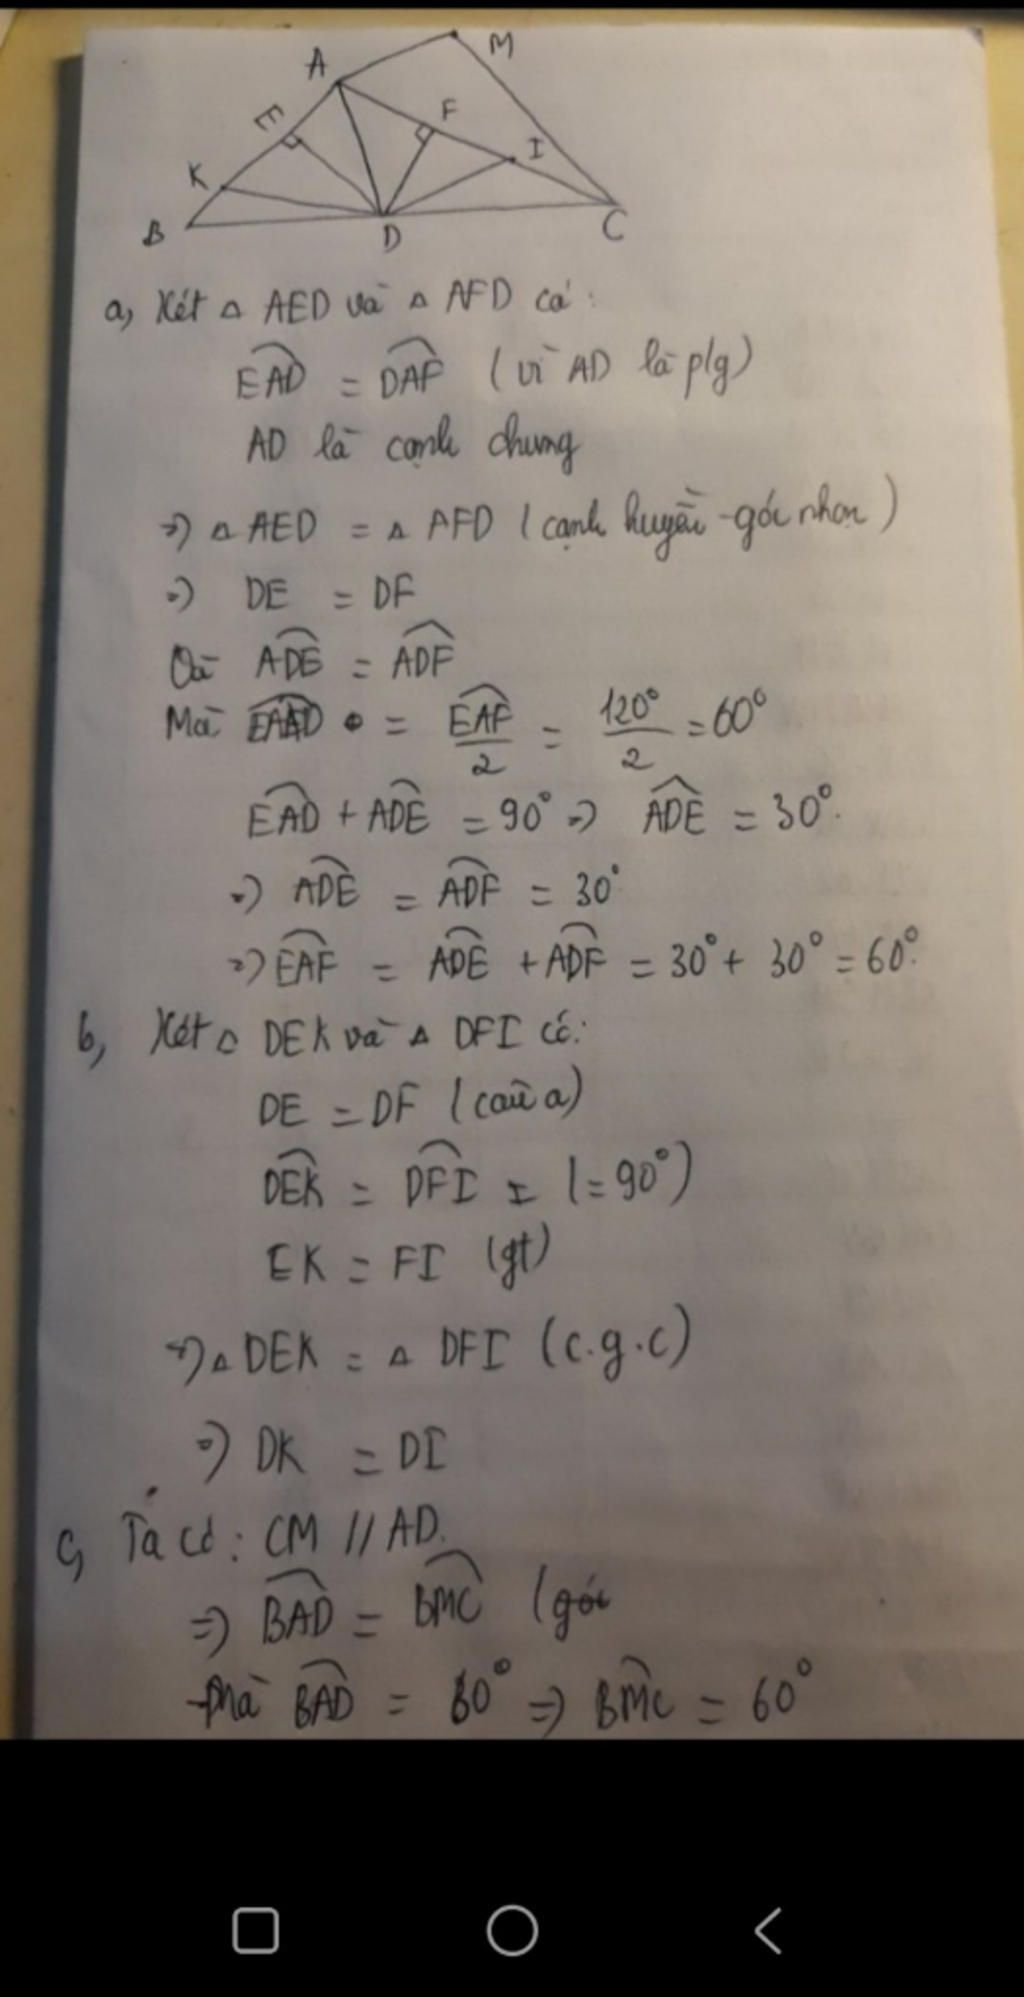 A
M
E
F
K
I
B
D
C
a, Xét △ AED và △ AFD có:
EAD = DAF (vì AD là p/g)
AD là cạnh chung
=> △ AED = △ AFD (cạnh huyền - góc nhọn)
=> DE = DF
Và ADE = ADF
Mà = EAF/2 = 120°/2 = 60°
EAD + ADE = 90° => ADE = 30°.
=> ADE = ADF = 30°
=> EAF = ADE + ADF = 30° + 30° = 60°.
b, Xét △ DEK và △ DFI có:
DE = DF (câu a)
DEK = DFI = (= 90°)
EK = FI (gt)
=> △ DEK = △ DFI (c.g.c)
=> DK = DI
c, Ta có: CM // AD.
=> BAD = BMC (góc
Mà BAD = 60° => BMC = 60°